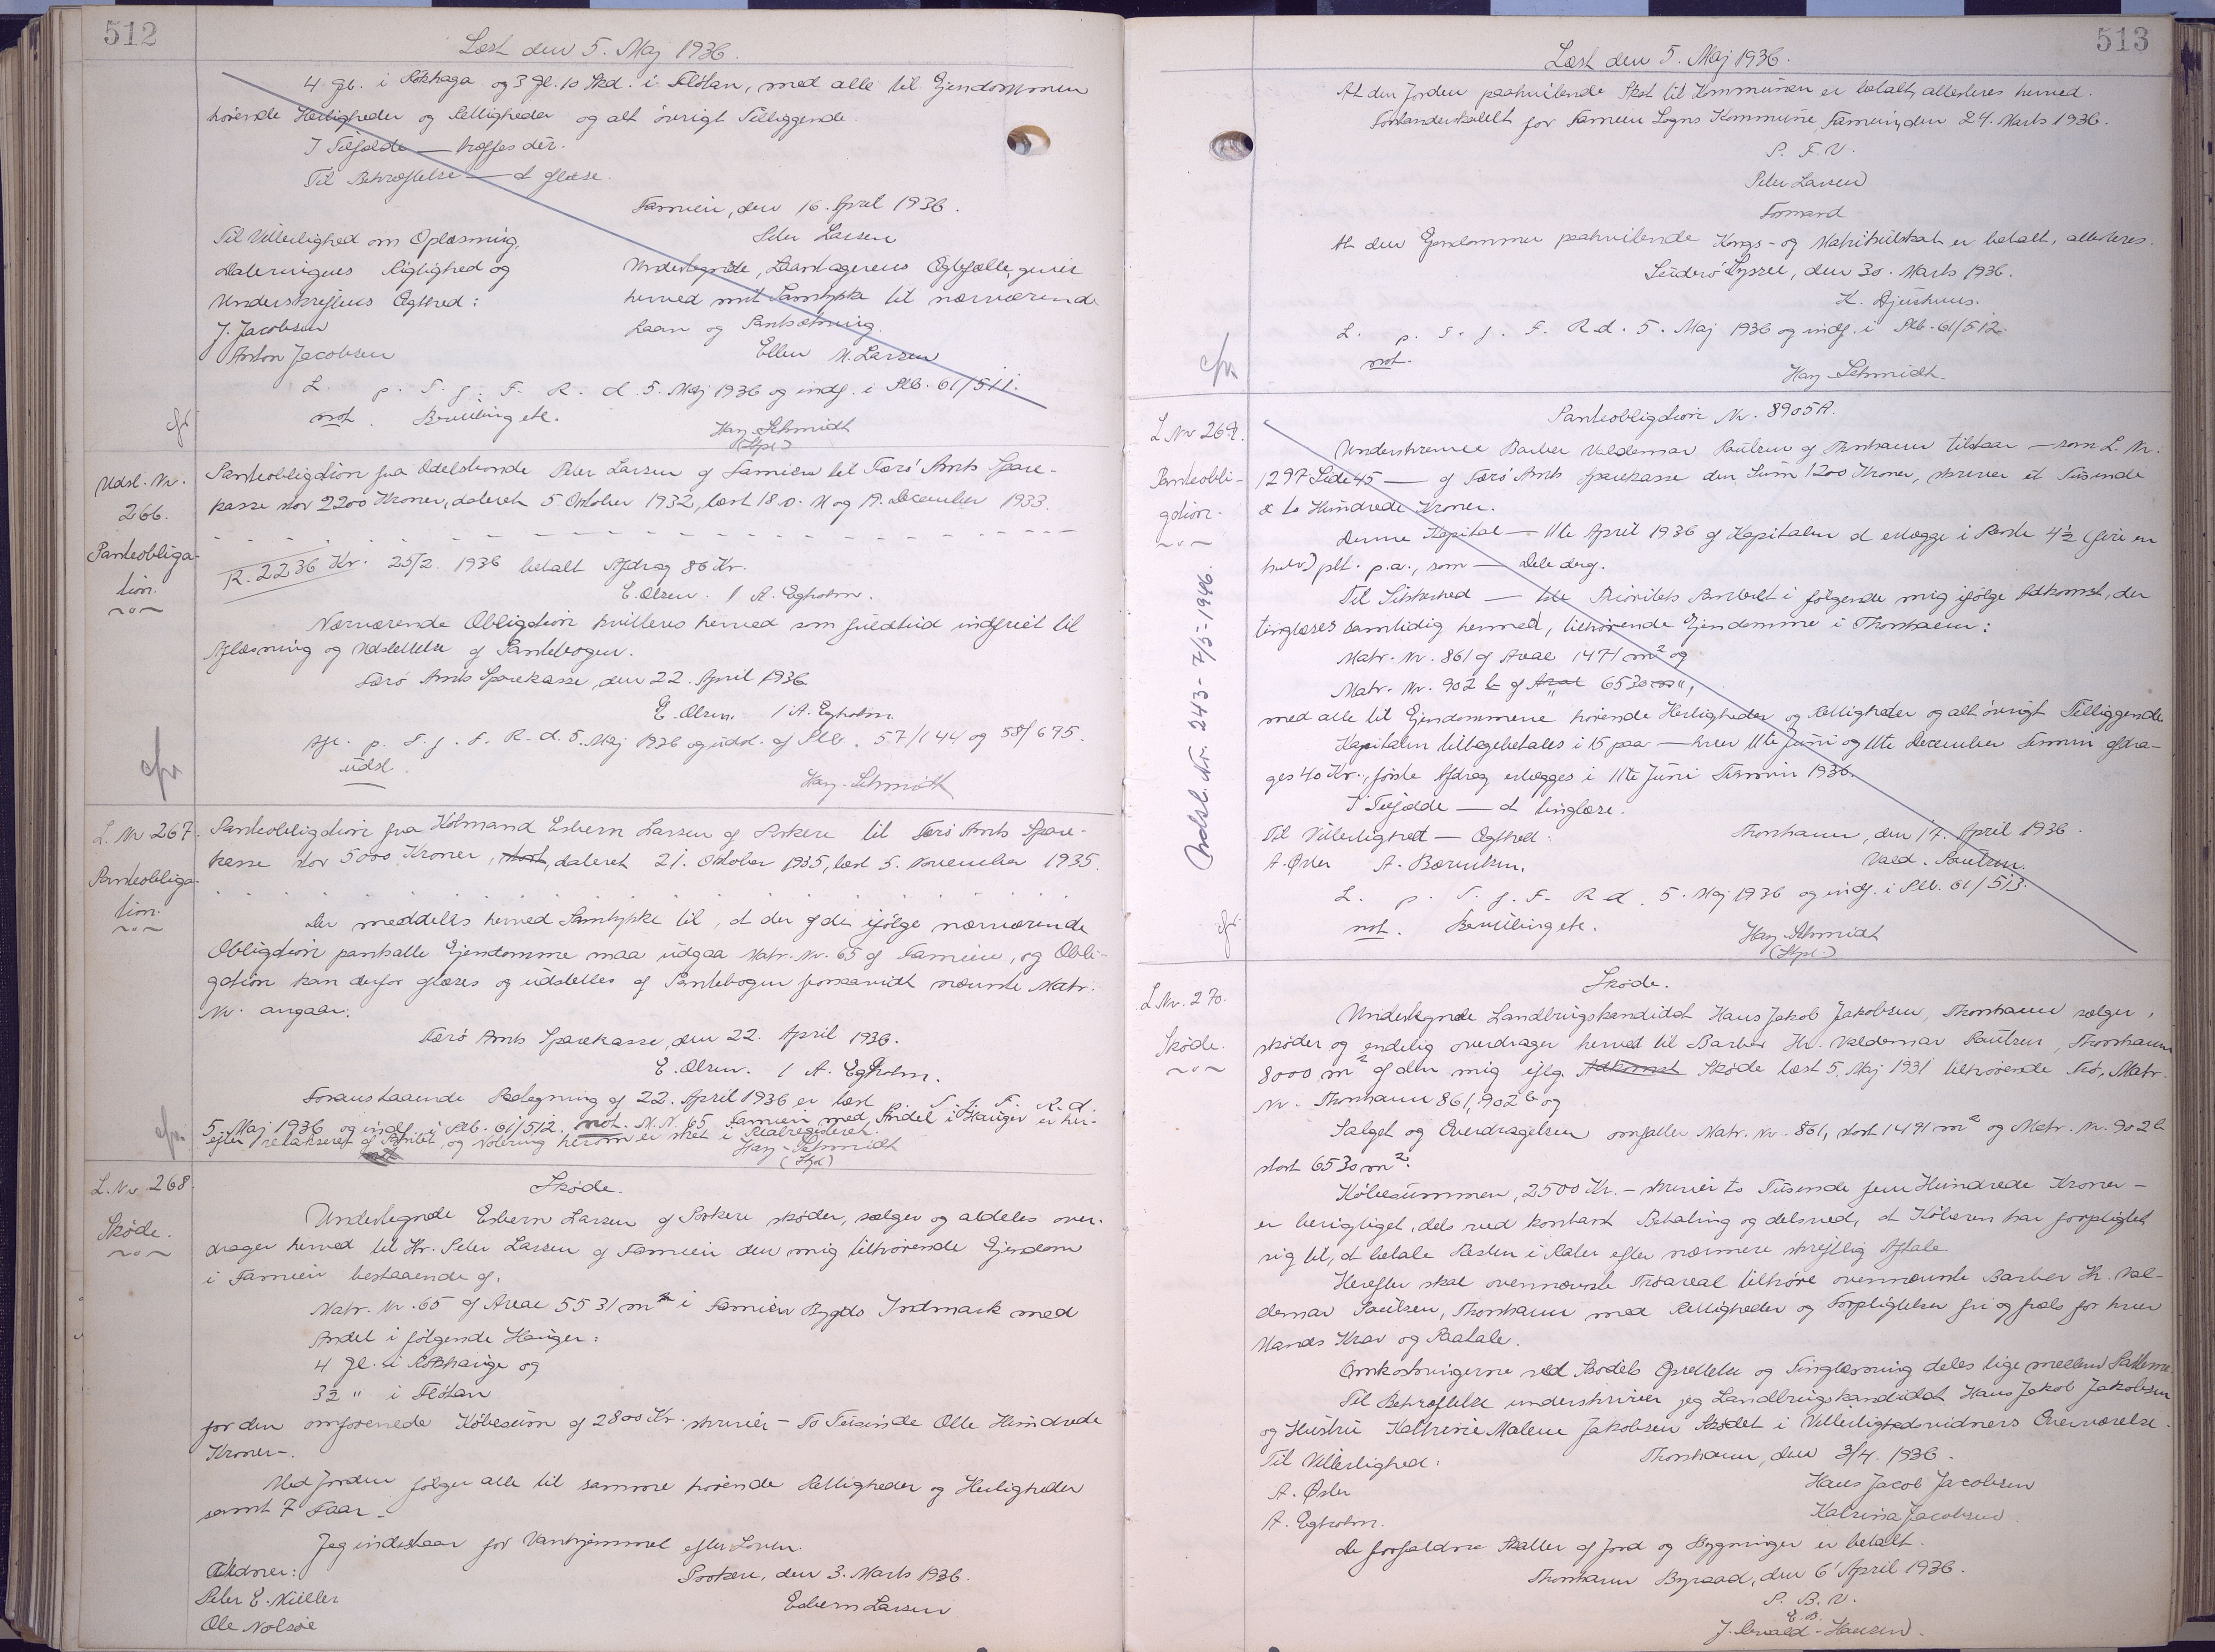 512
Læst den 5. Maj 1936.
4 Gl. i Rókhaga og 3 Gl. 10 Skd. i Flötan, med alle til Ejendommen
hörende Herligheder og Rettigheder og alt övrigt Tilliggende.
I Tilfælde — træffes dér.
Til Bekræftelse — at aflæse.
Famien, den 16. April 1936.
Til Vitterlighed om Oplæsning,
Dateringens Rigtighed og
Underskriftens Ægthed:
J. Jacobsen
Anton Jacobsen
Peter Larsen
Undertegnede, Laantagerens Ægtefælle, giver
herved mit Samtykke til nærværende
Laan og Pantsætning.
Ellen M. Larsen
L. p. T. f. F. R. d. 5. Maj 1936 og indf. i Ptb. 61/511.
not. Bevilling etc.
Hay-Schmidt
(Stpl.)
cfr.
Udsl. Nr.
266.
Panteobliga-
tion.
Panteobligation fra Odelsbonde Peter Larsen af Famien til Færö Amts Spare-
kasse stor 2200 Kroner, dateret 5 Oktober 1932, læst 18. o. M og 19. December 1933.
R. 2236 Kr. 25/2. 1936 betalt Afdrag 86 Kr.
E. Olsen. / A. Egholm.
Nærværende Obligation kvitteres herved som fuldtud indfriet til
Aflæsning og Udslettelse af Pantebogen.
Færö Amts Sparekasse, den 22. April 1936
E. Olsen. / A. Egholm.
Afl. p. T. f. F. R. d. 5. Maj 1936 og udsl. af Ptb. 57/144 og 58/695.
udsl.
Hay-Schmidt
cfr
L. Nr 267.
Panteobliga-
tion.
Panteobligation fra Kóbmand Esbern Larsen af Porkere til Færö Amts Spare-
kasse stor 5000 Kroner, stort, dateret 21. Oktober 1935, læst 5. November 1935.
Der meddelles herved Samtykke til, at der af de ifölge nærværende
Obligation pantsatte Ejendomme maa udgaa Matr. Nr. 65 af Famien, og Obli-
gation kan derfor aflæses og udslettes af Pantebogen forsaavidt nævnte Matr.
Nr. angaar.
Færö Amts Sparekasse, den 22. April 1936.
E. Olsen. / A. Egholm.
Foranstaaende Paategning af 22. April 1936 er læst p. T. f. F. R. d.
5. Maj 1936 og indf. i Ptb. 61/512. not. M. N. 65 Famien med Andel i Hauger er her-
efter relakseret af Pantet og Notering herom er sket i Realregisteret.
Hay-Schmidt
(Stpl)
cfr.
L. Nr. 268.
Sköde.
Sköde.
Undertegnede Esbern Larsen af Porkere sköder, sælger og aldeles over-
drager herved til Hr. Peter Larsen af Famien den mig tilhörende Ejendom
i Famien bestaaende af.
Matr. Nr. 65 af Areal 5531 m² i Famien Bygds Indmark med
Andel i fölgende Hauger:
4 Gl. i Rókhauge og
3½ " i Flötan
for den omforenede Köbesum af 2800 Kr. skriver - To Tusinde Otte Hundrede
Kroner-.
Med Jorden fölger alle til samme hörende Rettigheder og Herligheder
samt 7 Faar.
Jeg indestaar for Vanhjemmel efter Loven.
Vidner:
Peter E. Müller
Ole Nolsøe
Porkere, den 3. Marts 1936.
Esbern Larsen
513
Læst den 5. Maj 1936.
At den Jorden paahvilende Skat til Kommunen er betalt, attesteres herved.
Forstanderskabet for Famien Sogns Kommune, Famien, den 24. Marts 1936.
P. F. V.
Peter Larsen
Formand
At den Ejendomme paahvilende Kongs- og Matrikulskat er betalt, attesteres.
Suderö Syssel, den 30. Marts 1936.
K. Djurhuus.
L. p. T. f. F. R. d. 5. Maj 1936 og indf. i Ptb. 61/512.
not.
Hay-Schmidt.
cfr.
L Nr 269.
Panteobli-
gation.
Udsl. Nr. 243 - 7/5-1946.
Panteobligation Nr. 8905A.
Underskrevne Barber Valdemar Poulsen af Thorshavn tilstaar — som L. Nr.
1297 Side 45 — af Færö Amts Sparekasse den Sum 1200 Kroner, skriver et Tusinde
& to Hundrede Kroner.
Denne Kapital — 11te April 1936 af Kapitalen at erlægge i Rente 4½ (fire en
halv) pct. p.a., som — Dele deraf.
Til Sikkerhed — 1ste Prioritets Panteret i fölgende mig ifölge Adkomst, der
tinglæses samtidig hermed, tilhörende Ejendomme i Thorshavn:
Matr. Nr. 861 af Areal 1471 m² og
Matr. Nr. 902 b af Areal 6530 m²,
med alle til Ejendommene hörende Herligheder og Rettigheder og alt övrigt Tilliggende
Kapitalen tilbagebetales i 15 paa — hver 11te Juni og 11te December Termin afdra-
ges 40 Kr., förste Afdrag erlægges i 11te Juni Termin 1936.
I Tilfælde — at tinglæse.
Til Vitterlighed — Ægthed:
A. Øster A. Bærentsen.
Thorshavn, den 17. April 1936.
Vald. Poulsen.
L. p. T. f. F. R d. 5. Maj 1936 og indf. i Ptb. 61/513.
not. Bevilling etc.
Hay-Schmidt
(Stpl.)
cfr.
L Nr. 270.
Sköde.
Sköde.
Undertegnede Landbrugskandidat Hans Jakob Jakobsen, Thorshavn sælger,
sköder og endelig overdrager herved til Barber Hr. Valdemar Poulsen, Thorshavn
8000 m² af den mig iflg. Adkomst Sköde læst 5. Maj 1931 tilhörende Trö, Matr.
Nr. Thorshavn 861, 902 b og
Salget og Overdragelsen omfatter Matr. Nr. 861, stort 1471 m² og Matr. Nr. 902 b
stort 6530 m².
Köbesummen, 2500 Kr. - skriver to Tusende fem Hundrede Kroner -
er berigtiget, dels ved kontant Betaling og dels ved, at Köberen har forpligtet
sig til, at betale Resten i Rater efter nærmere skriftlig Aftale
Herefter skal ovennævnte Tröareal tilhöre ovennævnte Barber Hr. Val-
demar Poulsen, Thorshavn med Rettigheder og Forpligtelser fri og frels for hver
Mands Krav og Paatale.
Omkostningerne ved Skødets Oprettelse og Tinglæsning deles lige mellem Parterne.
Til Bekræftelse underskriver jeg Landbrugskandidat Hans Jakob Jakobsen
og Hustru Kathrine Malene Jakobsen Skødet i Vitterlighedsvidners Overværelse.
Til Vitterlighed:
A. Øster
A. Egholm.
Thorshavn, den 3/4. 1936.
Hans Jacob Jacobsen
Katrina Jacobsen.
De forfaldne Skatter af Jord og Bygninger er betalt.
Thorshavn Byraad, den 6 April 1936.
P. B. V.
E. B.
J. Ewald-Hansen.